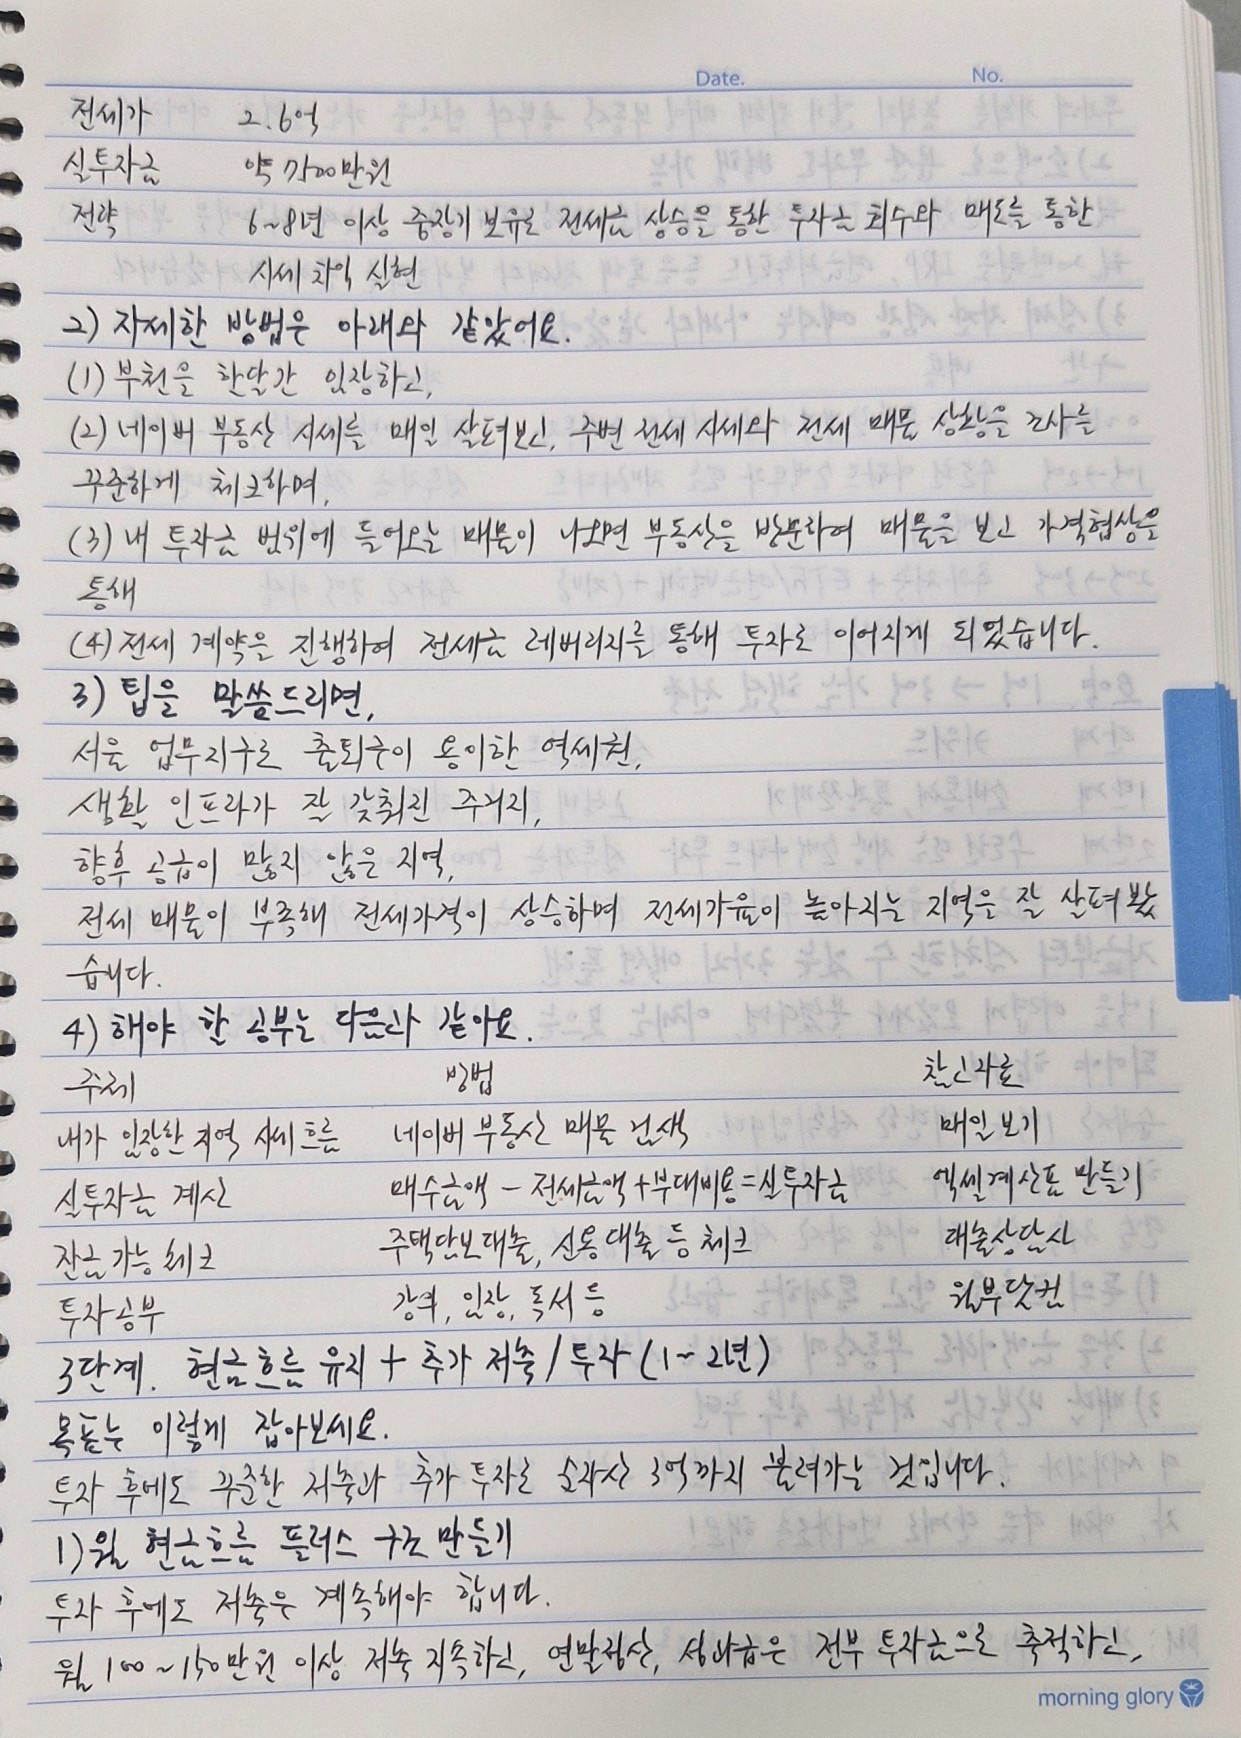 Date. No.
전세가 2.6억
실투자금 약 7500만원
전략 6~8년 이상 중장기 보유로 전세금 상승을 통한 투자금 회수와 매도를 통한
시세 차익 실현
2) 자세한 방법은 아래와 같았어요.
(1) 부천을 한달간 임장하고,
(2) 네이버 부동산 시세를 매일 살펴보고, 주변 전세 시세와 전세 매물 상황을 조사를
꾸준하게 체크하며,
(3) 내 투자금 범위에 들어오는 매물이 나오면 부동산을 방문하여 매물을 보고 가격협상을
통해
(4) 전세 계약을 진행하여 전세금 레버리지를 통해 투자로 이어지게 되었습니다.
3) 팁을 말씀드리면,
서울 업무지구로 출퇴근이 용이한 역세권,
생활 인프라가 잘 갖춰진 주거지,
향후 공급이 많지 않은 지역,
전세 매물이 부족해 전세가격이 상승하며 전세가율이 높아지는 지역을 잘 살펴봤
습니다.
4) 해야 할 공부는 다음과 같아요.
주제 방법 참고자료
내가 임장한 지역 시세 흐름 네이버 부동산 매물 검색 매일 보기
실투자금 계산 매수금액 - 전세금액 + 부대비용 = 실투자금 엑셀계산표 만들기
잔금 가능 체크 주택담보대출, 신용대출 등 체크 대출상담사
투자공부 강의, 임장, 독서 등 월부닷컴
3단계. 현금흐름 유지 + 추가 저축 / 투자 (1~2년)
목표는 이렇게 잡아보세요.
투자 후에도 꾸준한 저축과 추가 투자로 순자산 3억까지 불려가는 것입니다.
1) 월 현금흐름 플러스 구조 만들기
투자 후에도 저축은 계속해야 합니다.
월 100~150만원 이상 저축 지속하고, 연말정산, 성과급은 전부 투자금으로 축적하고,
morning glory